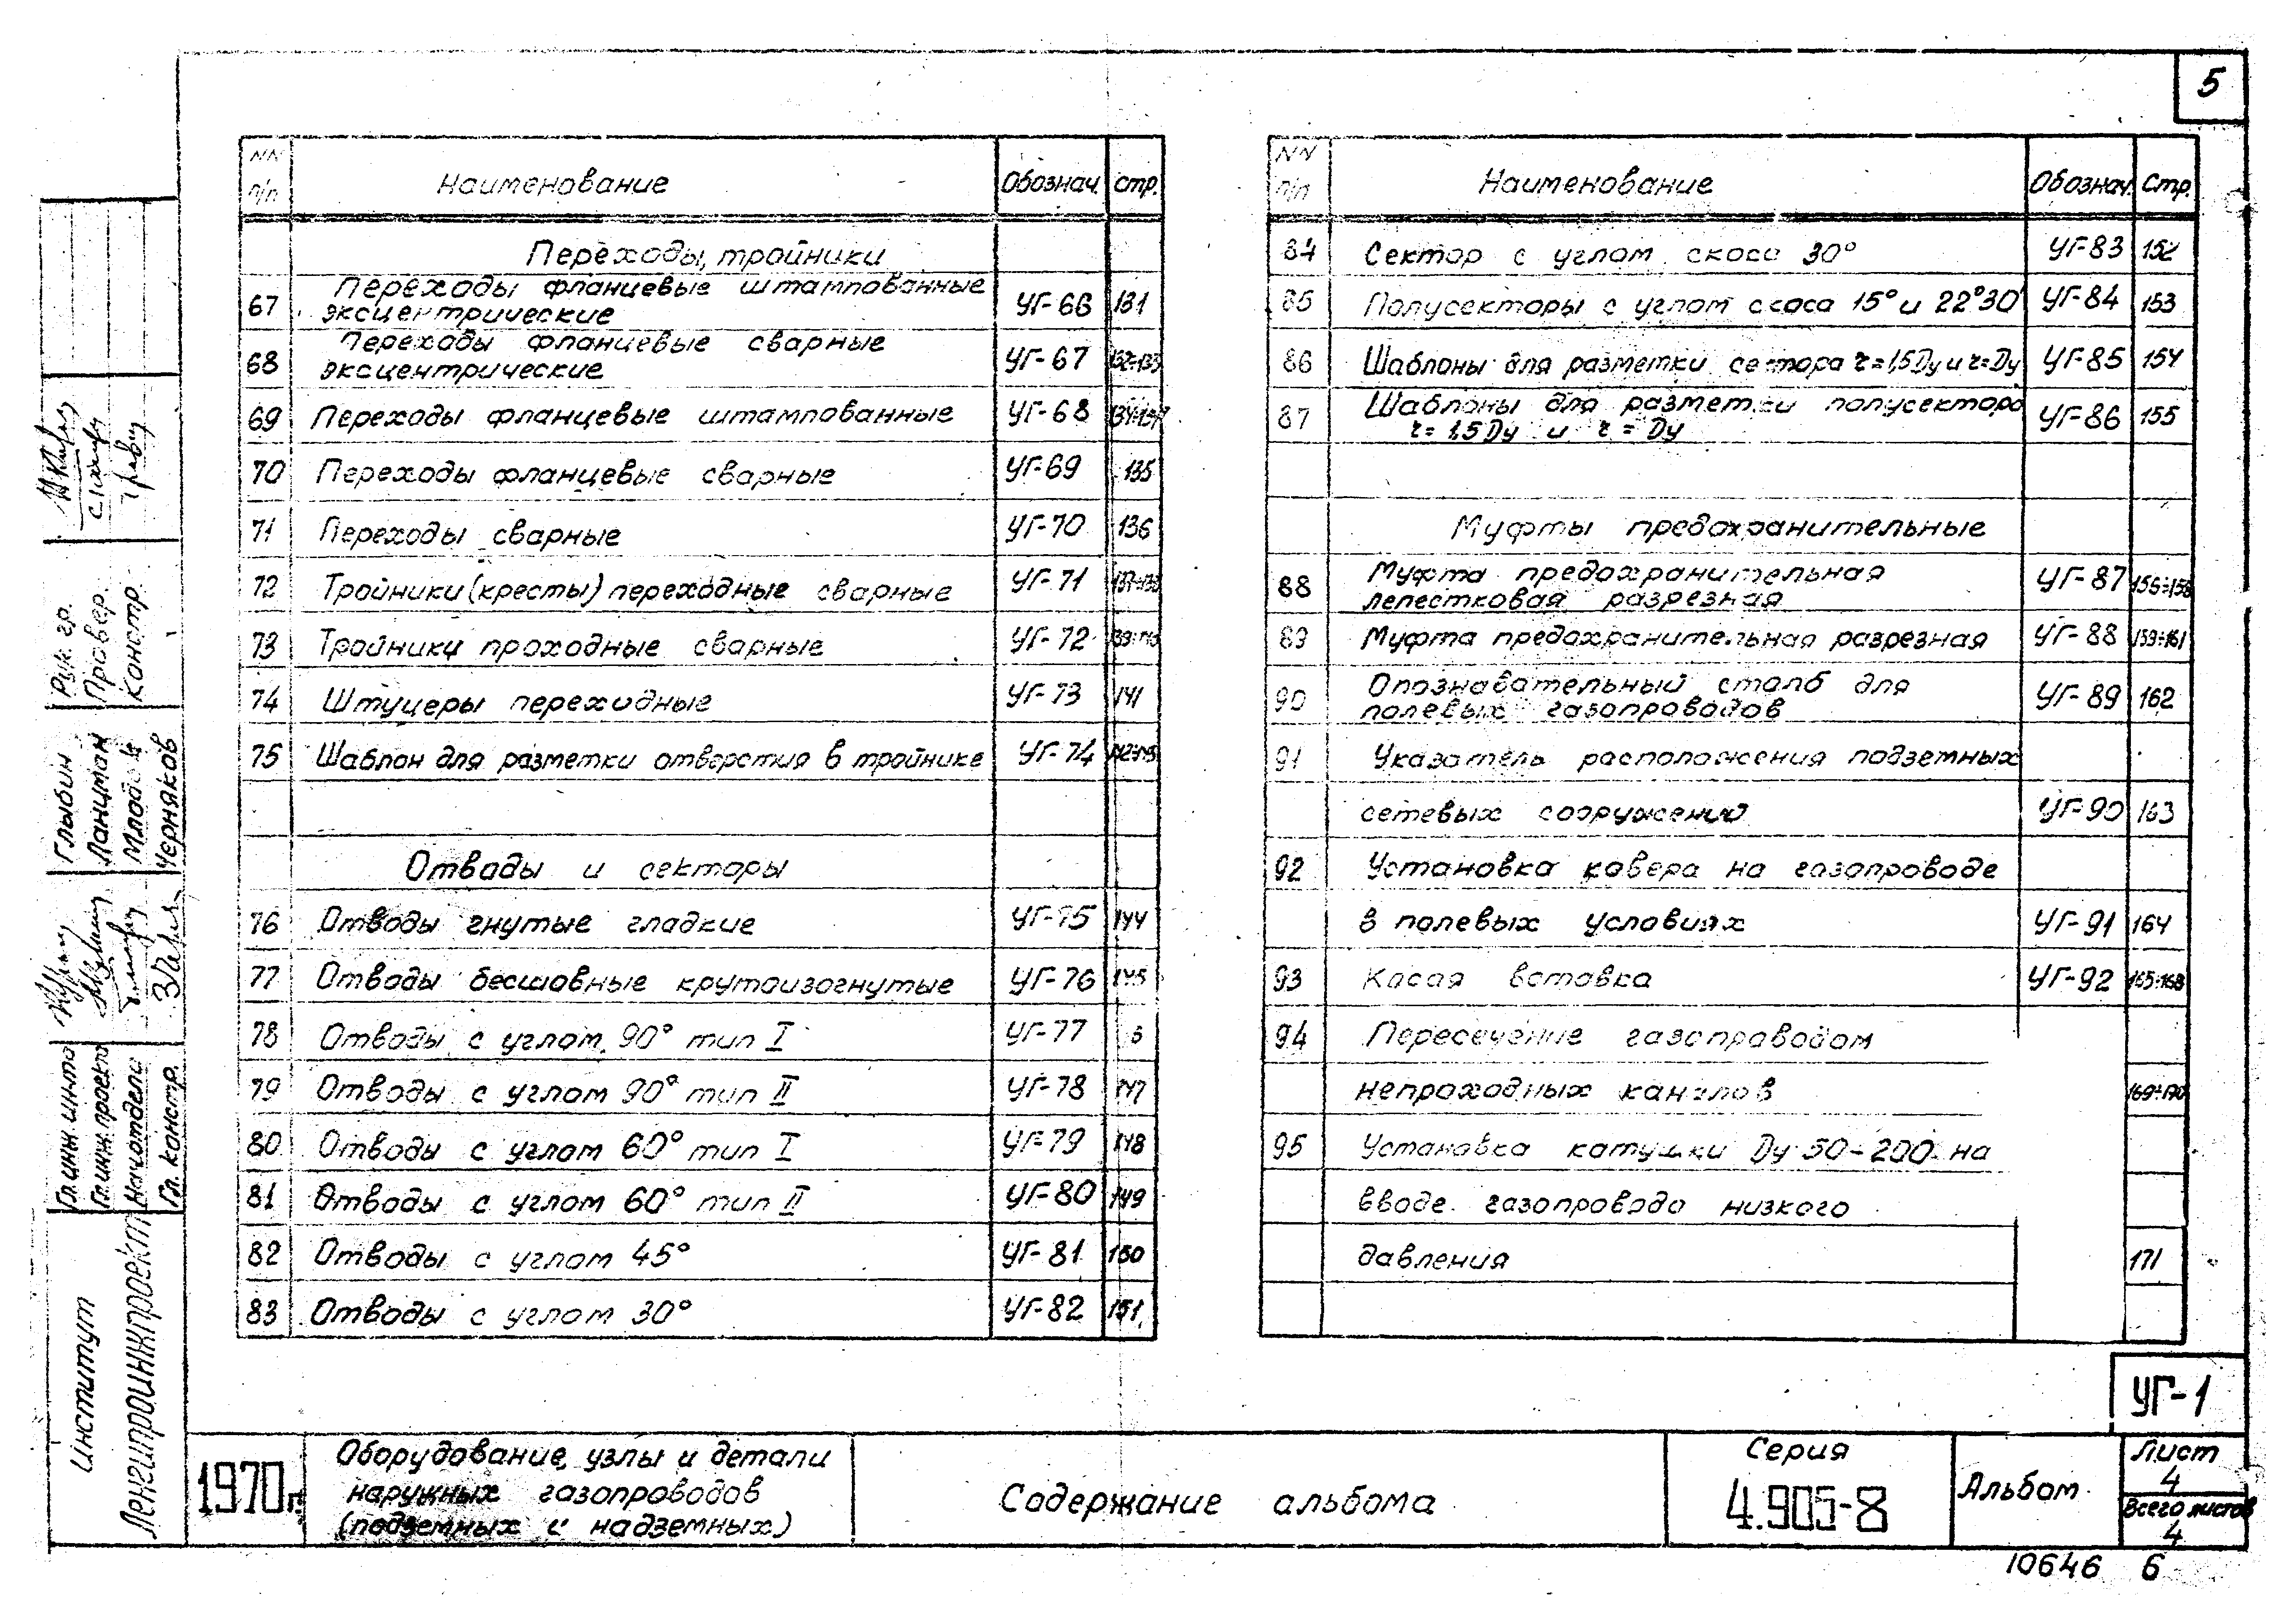 5
NN п/п Наименование Обознач. стр.
Переходы, тройники
67 Переходы фланцевые штампованные
эксцентрические УГ-66 131
68 Переходы фланцевые сварные
эксцентрические УГ-67 132÷133
69 Переходы фланцевые штампованные УГ-68
70 Переходы фланцевые сварные УГ-69 135
71 Переходы сварные УГ-70 136
72 Тройники (кресты) переходные сварные УГ-71
73 Тройники проходные сварные УГ-72
74 Штуцеры переходные УГ-73 141
75 Шаблон для разметки отверстия в тройнике УГ-74
Отводы и секторы
76 Отводы гнутые гладкие УГ-75 144
77 Отводы бесшовные крутоизогнутые УГ-76 145
78 Отводы с углом 90° тип I УГ-77
79 Отводы с углом 90° тип II УГ-78 147
80 Отводы с углом 60° тип I УГ-79 148
81 Отводы с углом 60° тип II УГ-80 149
82 Отводы с углом 45° УГ-81 150
83 Отводы с углом 30° УГ-82 151
NN п/п Наименование Обознач. Стр.
84 Сектор с углом скоса 30° УГ-83 152
85 Полусекторы с углом скоса 15° и 22°30' УГ-84 153
86 Шаблоны для разметки сектора r=1,5Dу и r=Dу УГ-85 154
87 Шаблоны для разметки полусектора
r=1,5Dу и r=Dу УГ-86 155
Муфты предохранительные
88 Муфта предохранительная
лепестковая разрезная УГ-87 156÷158
89 Муфта предохранительная разрезная УГ-88 159÷161
90 Опознавательный столб для
полевых газопроводов УГ-89 162
91 Указатель расположения подземных
сетевых сооружений УГ-90 163
92 Установка ковера на газопроводе
в полевых условиях УГ-91 164
93 Косая вставка УГ-92 165÷168
94 Пересечение газопроводом
непроходных каналов 169÷170
95 Установка катушки Dу 50-200 на
вводе газопровода низкого
давления 171
Рук. гр.
Провер.
Констр.
Глыбин
Ланцман
Черняков
Гл. инж. ин-та
Гл. инж. проекта
Нач. отдела
Гл. констр.
Институт
Ленгипроинжпроект
УГ-1
1970г.
Оборудование, узлы и детали
наружных газопроводов
(подземных и надземных)
Содержание альбома
Серия
4.905-8
Альбом
Лист
4
Всего листов
4
10646 6